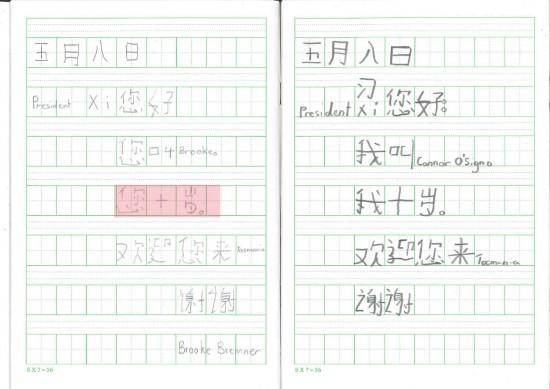 五月八日
President Xi 您好
您叫 Brooke。
您十岁。
欢迎您来 Tasmania
谢谢
Brooke Bremner
8X7=56
五月八日
习
President Xi 您好。
我叫 Connor O'Signo
我十岁。
欢迎您来 Tasmania
谢谢
8X7=56